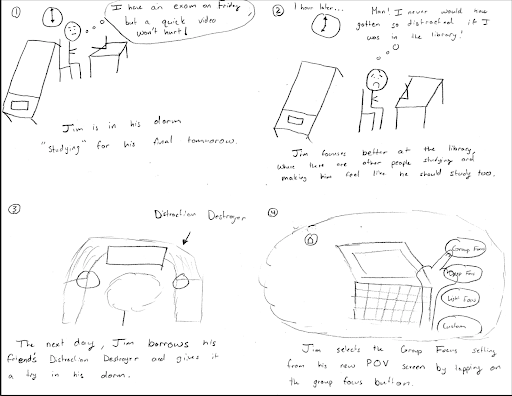 ①
I have an exam on Friday
but a quick video
won't hurt!
Jim is in his dorm
"studying" for his final tomorrow.
②
1 hour later...
Man! I never would have
gotten so distracted if I
was in the library!
Jim focuses better at the library,
where there are other people studying and
making him feel like he should study too.
③
Distraction Destroyer
The next day, Jim borrows his
friend's Distraction Destroyer and gives it
a try in his dorm.
④
Group Focus
Deep Focus
Light Focus
Custom
Jim selects the Group Focus setting
from his new POV screen by tapping on
the group focus button.